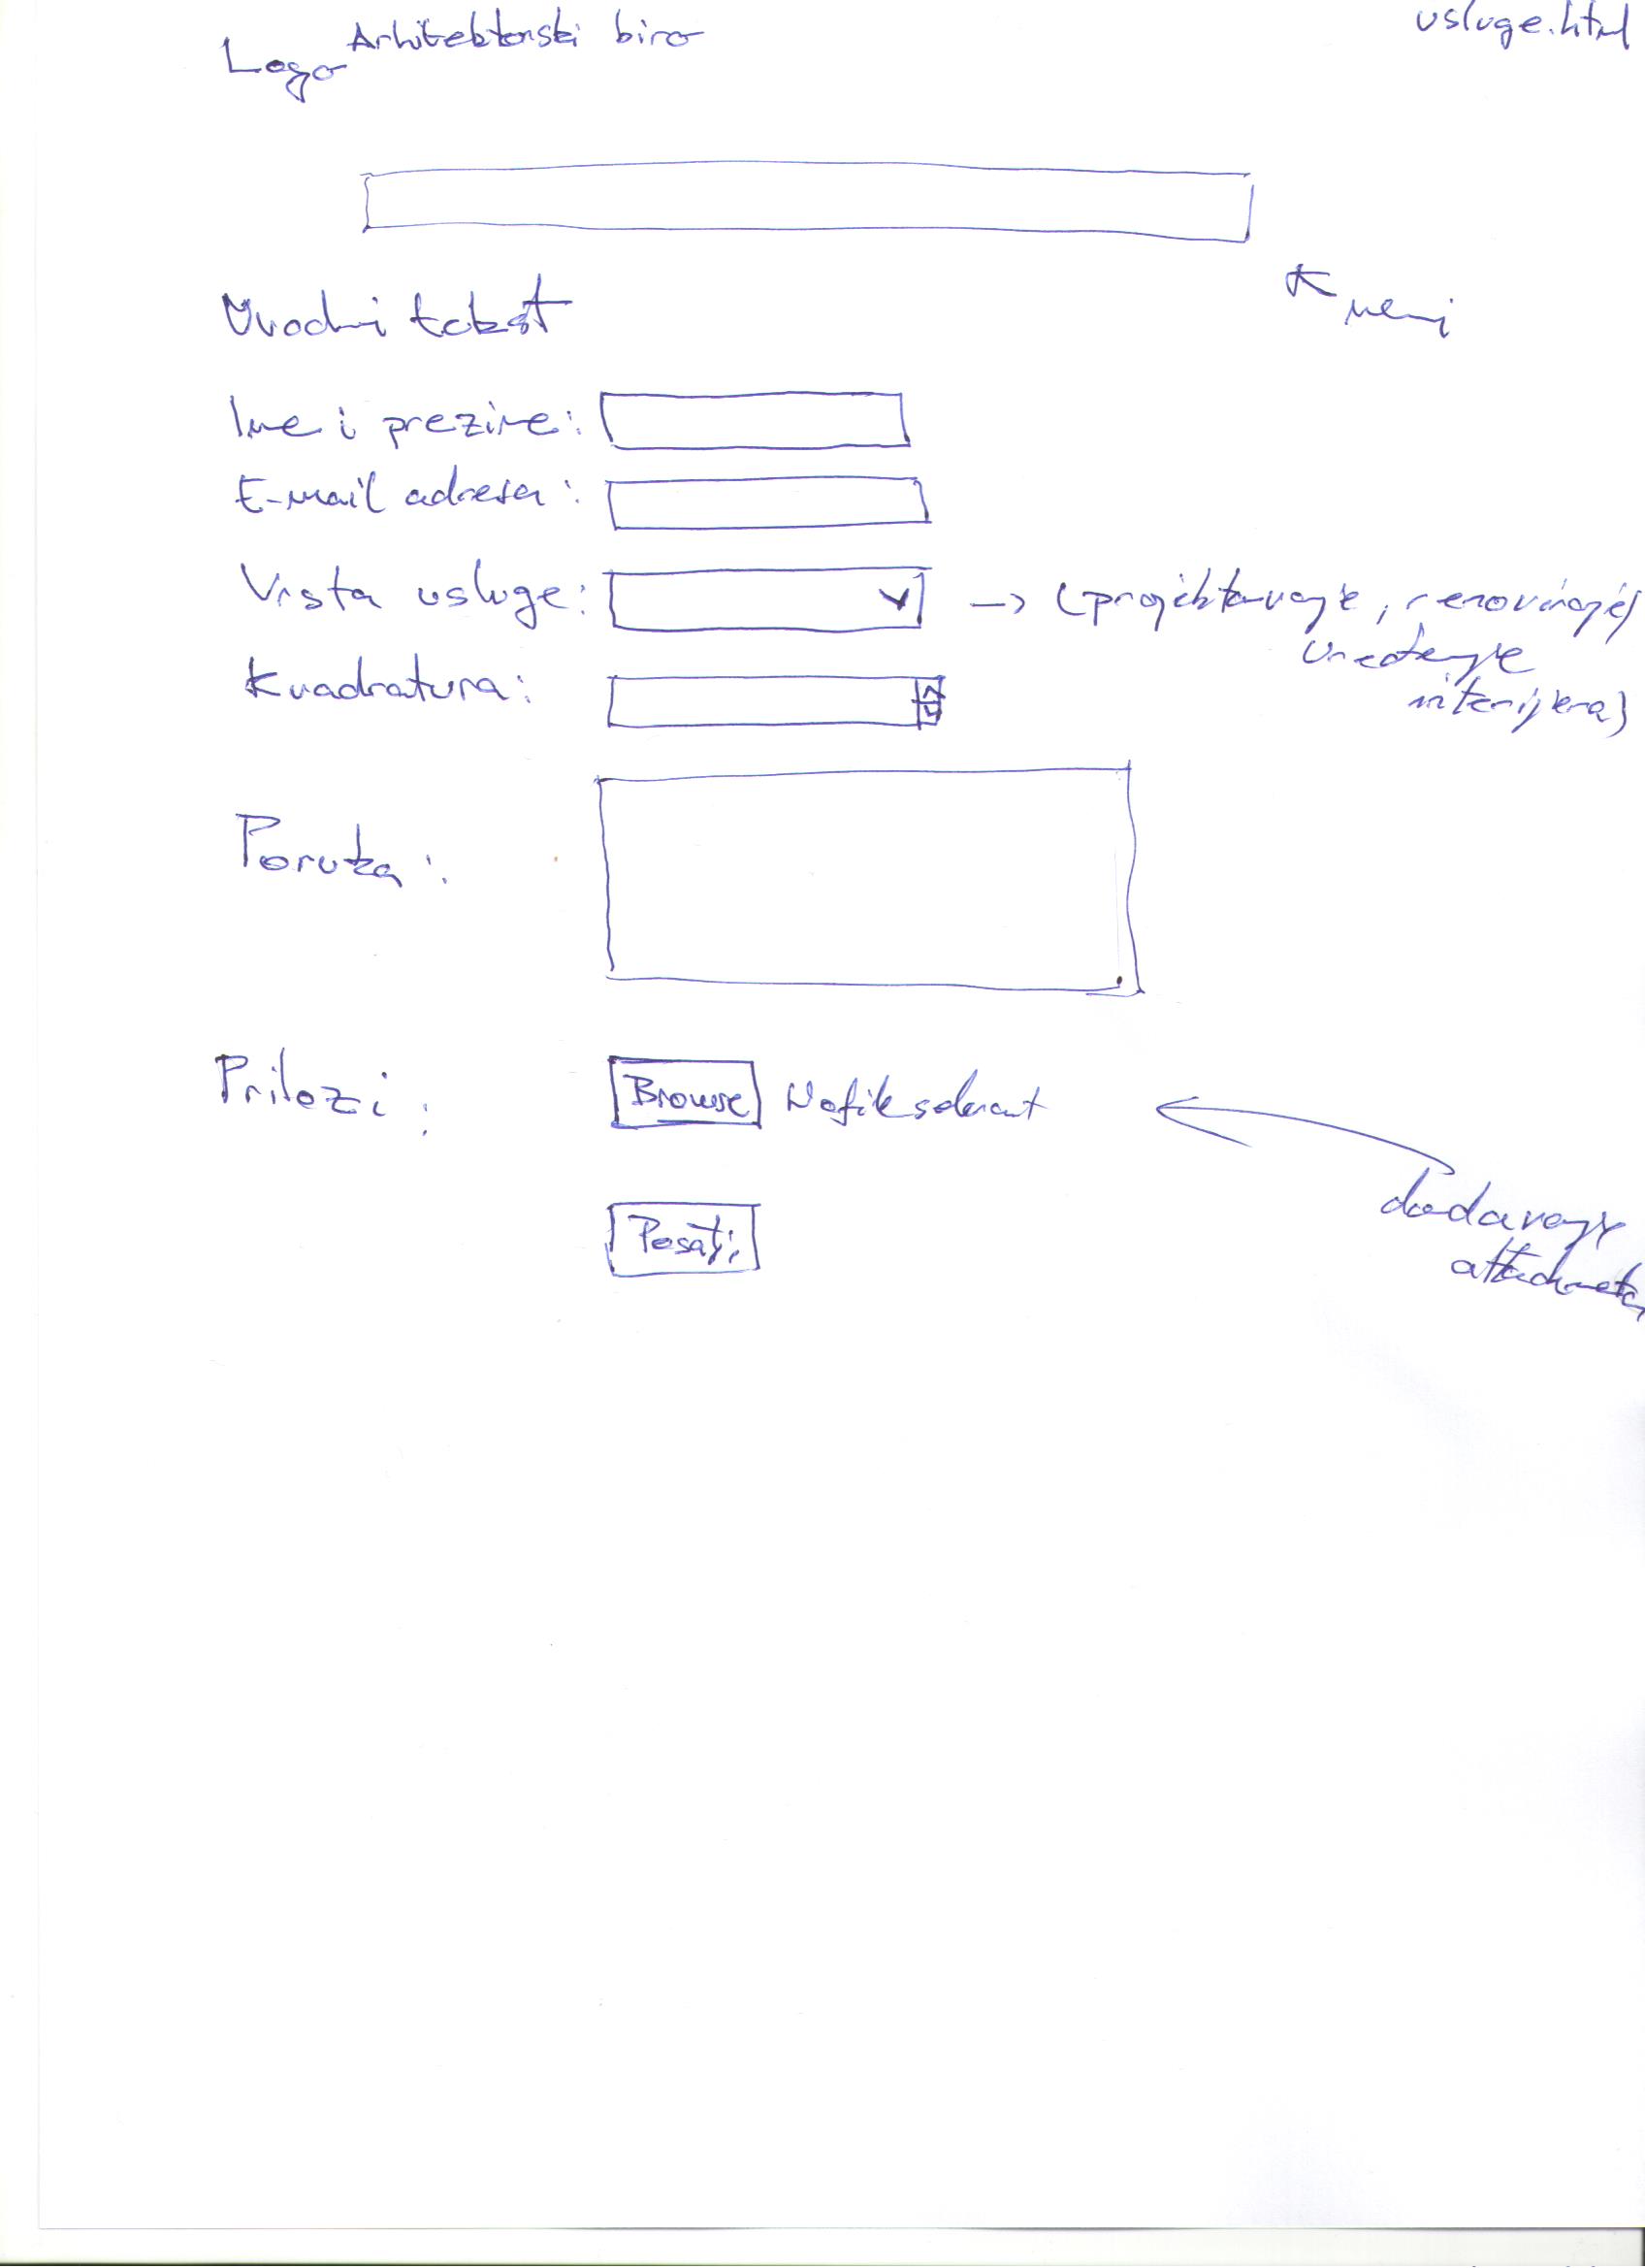 usluge.html
Logo Arhitektonski biro
meni
Uvodni tekst
Ime i prezime:
E-mail adresa:
Vrsta usluge: → (projektovanje, renoviranje,
uređenje
interijera)
Kvadratura:
Poruka:
Prilozi: Browse No file selected
dodavanje
attachmenta
Pošalji